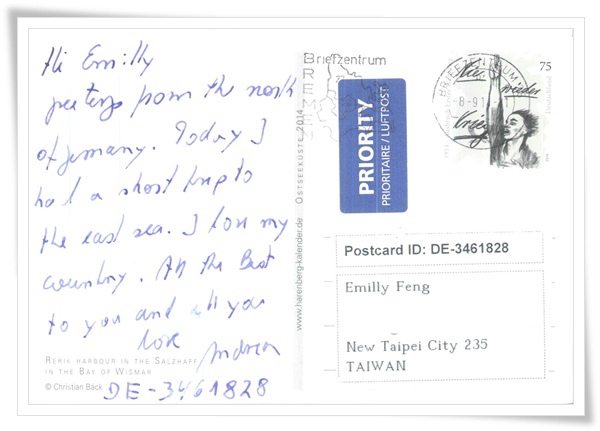 Hi Emilly
greetings from the north
of germany. Today I
had a short trip to
the east sea. I love my
country. All the Best
to you and all you
love Andrea
RERIK HARBOUR IN THE SALZHAFF
IN THE BAY OF WISMAR
© Christian Bäck
DE-3461828
www.harenberg-kalender.de OSTSEEKÜSTE 2014
Briefzentrum
BREMEN
PRIORITY
PRIORITAIRE / LUFTPOST
BRIEFZENTRUM
-8-91
nie
wieder
krieg
75
Deutschland
Postcard ID: DE-3461828
Emilly Feng
New Taipei City 235
TAIWAN